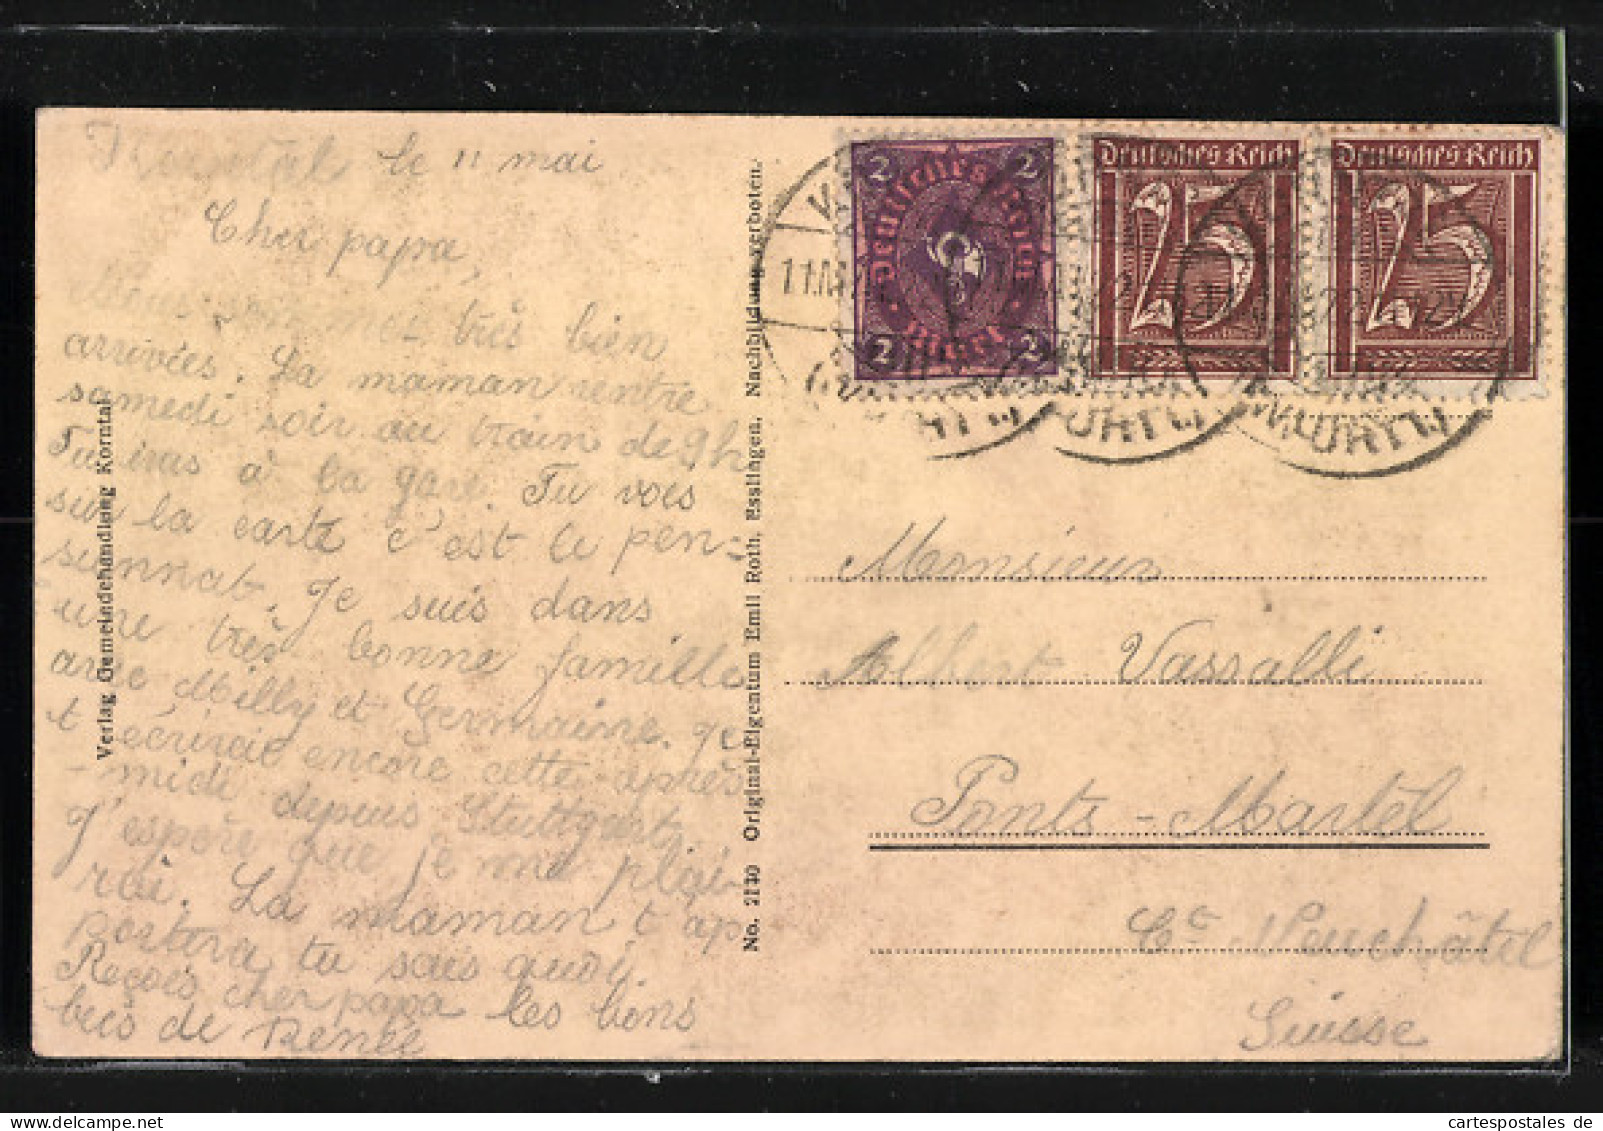 Korntal le 11 mai
Cher papa,
Nous sommes très bien
arrivées. La maman rentre
samedi soir au train de 9h
Tu iras à la gare. Tu vois
sur la carte c'est le pen=
sionnat. Je suis dans
une très bonne famille
avec Milly et Germaine. Je
t'écrirai encore cette après
-midi depuis Stuttgart.
J'espère que je me plai-
rai. La maman t'ap
portera tu sais quoi.
Reçois cher papa les bons
becs de Renée
Verlag Gemeindehandlung Korntal
No. 2140 Original-Eigentum Emil Roth, Esslingen. Nachbildung verboten.
2 2
Deutsches Reich
2 Mark 2
Deutsches Reich
25
Deutsches Reich
25
11.MA
WÜRTT.
Monsieur
Albert Vassalli
Ponts-Martel
Ct Neuchâtel
Suisse
cartespostales de